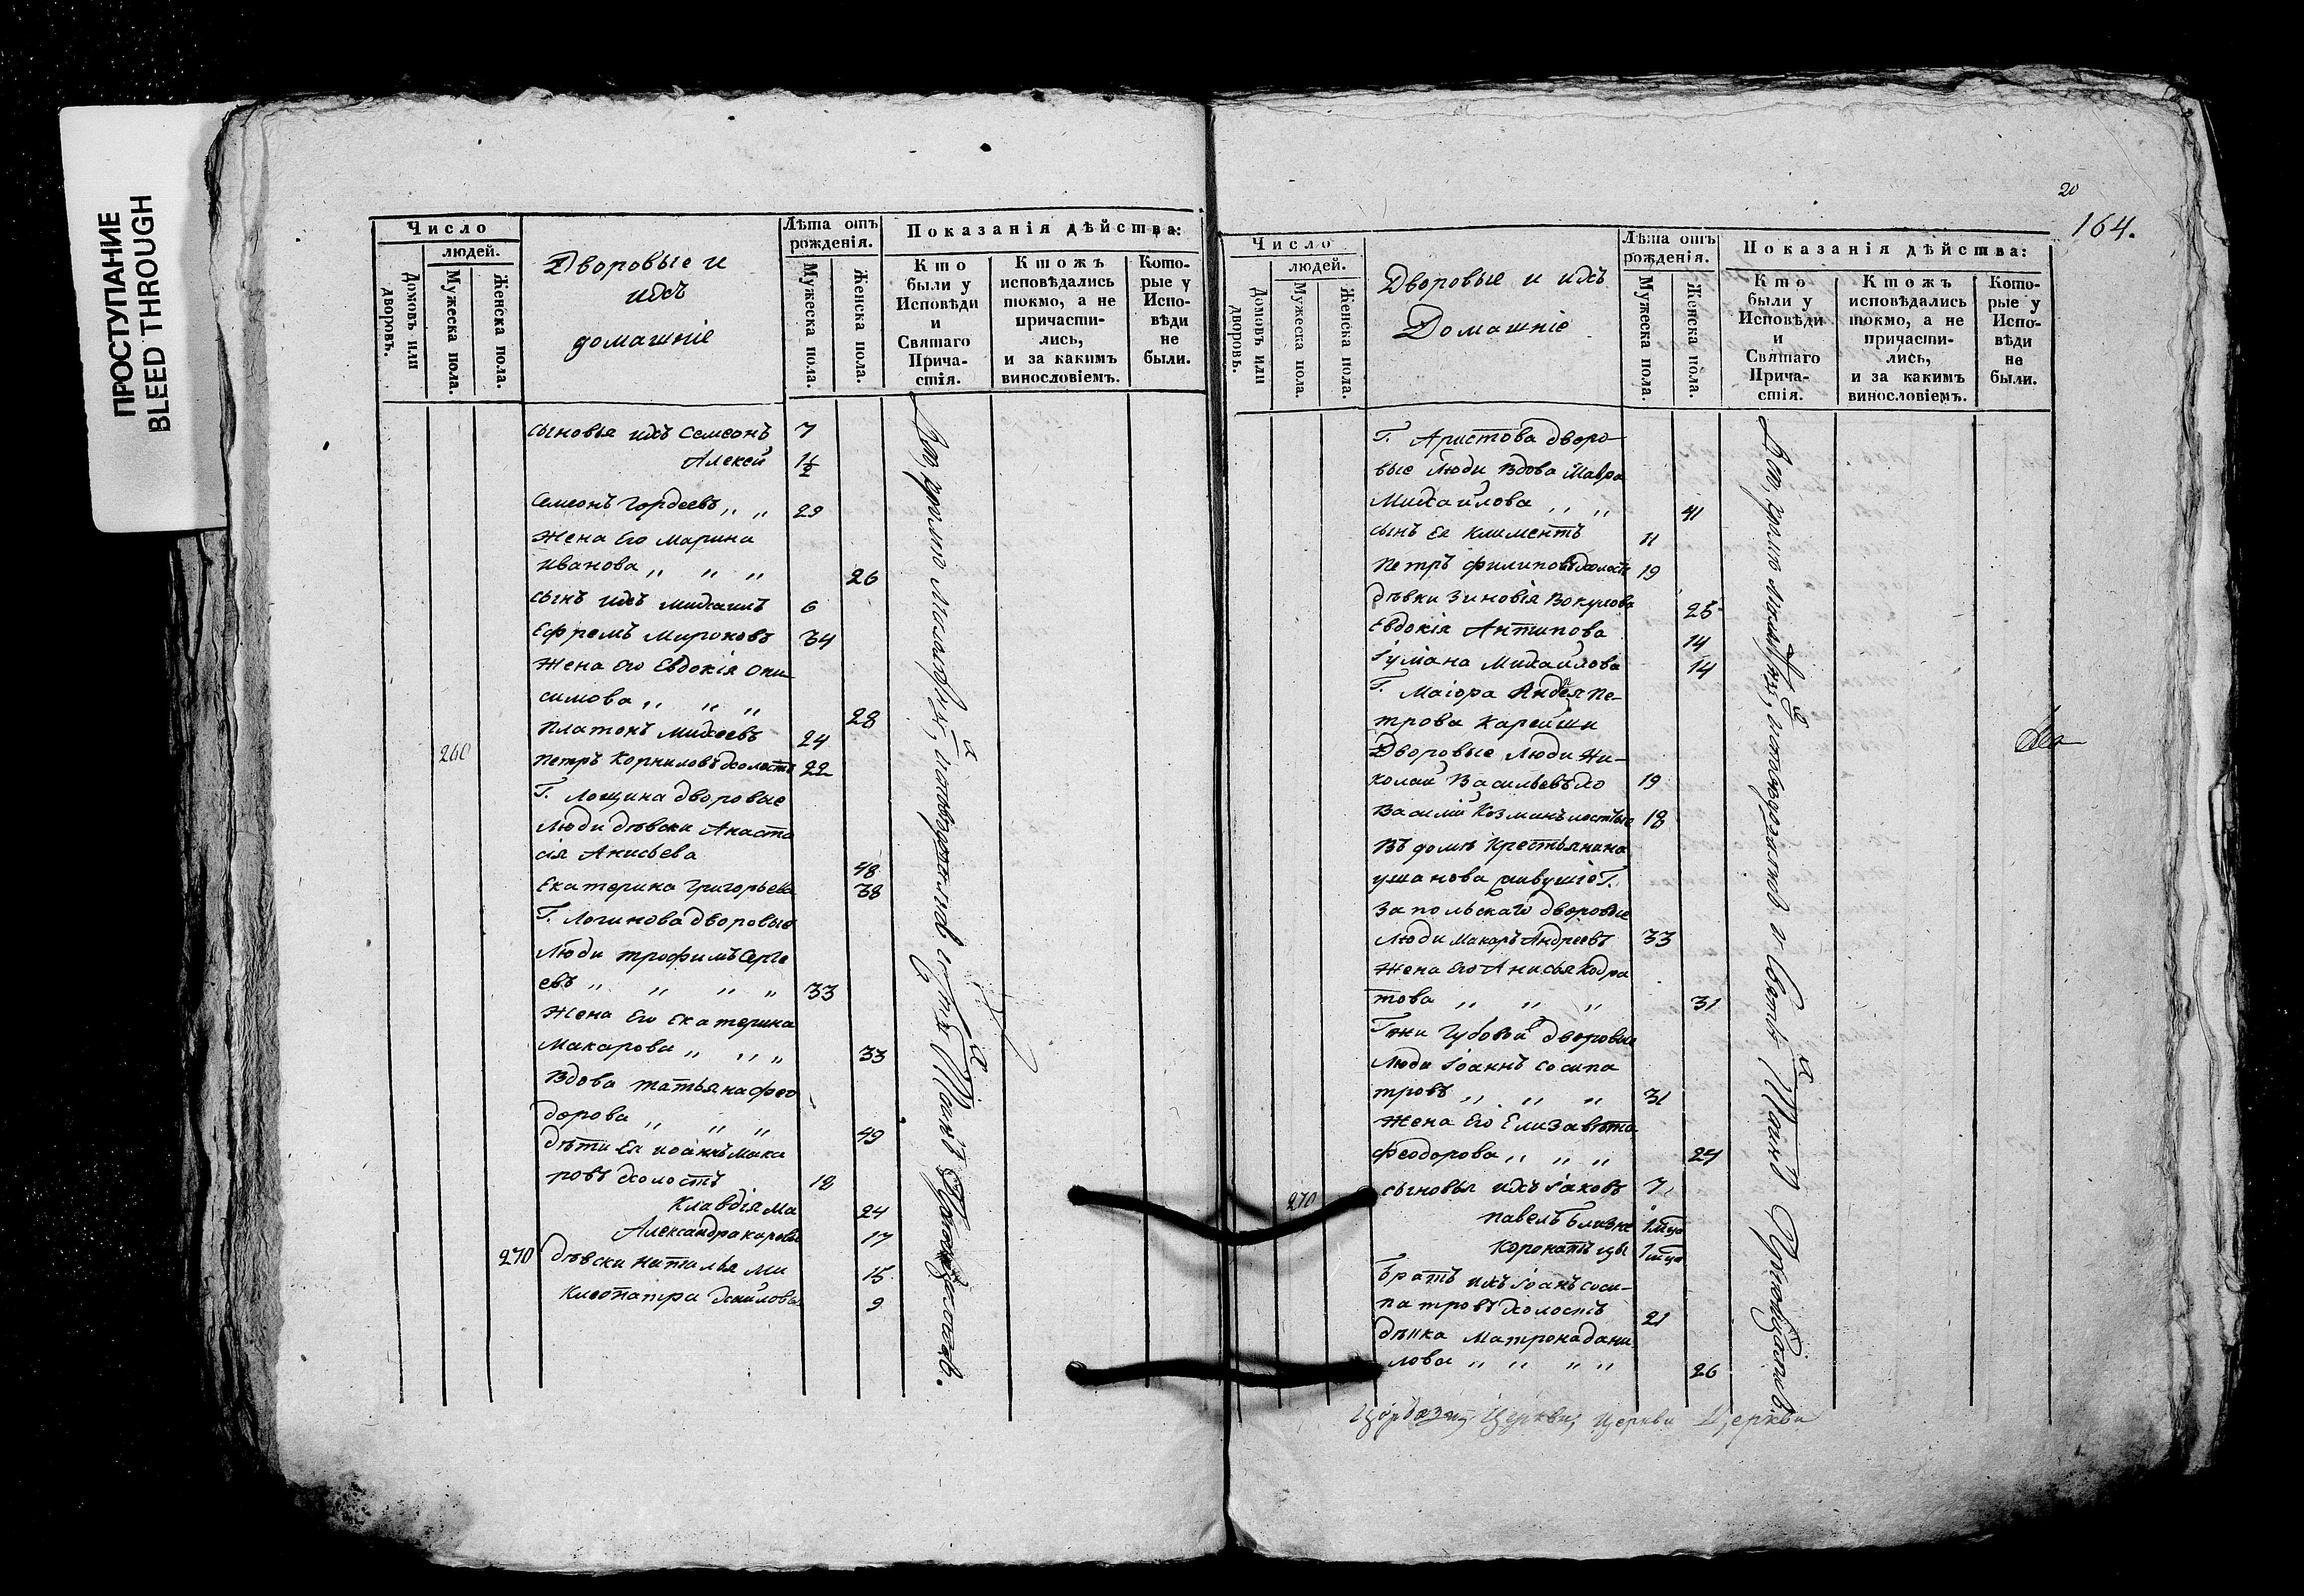 ПРОСТУПАНИЕ
BLEED THROUGH
Число
людей.
Домовъ или дворовъ.
Мужеска пола.
Женска пола.
Дворовые и
ихъ
домашніе
Лѣта отъ
рожденія.
Мужеска пола.
Женска пола.
Показанія дѣйства:
Кто
были у
Исповѣди
и
Святаго
Прича-
стія.
Ктожъ
исповѣдались
токмо, а не
причасти-
лись,
и за какимъ
винословіемъ.
Кото-
рые у
Испо-
вѣди
не
были.
сыновья ихъ Семеонъ 7
Алексей 1½
Семеонъ Гордеевъ „ „ 29
Жена Его Марина
Иванова „ „ „ 26
сынъ ихъ Михаилъ 6
Ефремъ Мироновъ 34
Жена Его Евдокія Они-
симова „ „ „ 28
Платонъ Михеевъ 24
260 Петръ Корниловъ холостъ 22
Г. Лощина дворовые
Люди дѣвки Анаста
сія Анисьева 48
Екатерина Григорьева 38
Г. Логинова дворовые
Люди трофимъ Серге
евъ „ „ „ „ 33
Жена Его Екатерина
Макарова „ „ „ 33
Вдова татьяна фео
дорова „ „ „ 49
дѣти Ея иоаннъ Мака
ровъ холостъ 18
Клавдія Ма 24
Александра каровы 17
270 дѣвки наталья Ми 15
Клеопатра хаиловы 9
20
164.
Число
людей.
Домовъ или дворовъ.
Мужеска пола.
Женска пола.
Дворовые и ихъ
Домашніе
Лѣта отъ
рожденія.
Мужеска пола.
Женска пола.
Показанія дѣйства:
Кто
были у
Исповѣди
и
Святаго
Прича-
стія.
Ктожъ
исповѣдались
токмо, а не
причасти-
лись,
и за какимъ
винословіемъ.
Кото-
рые у
Испо-
вѣди
не
были.
Г. Аристова дворо-
вые Люди Вдова Мавра
Михайлова „ „ 41
сынъ Ея Климентъ 11
Петръ филиповъ холостъ 19
дѣвки Зиновія Вокулова 25
Евдокія Антипова 14
Іуліана Михайлова 14
Г. Маіора Андрея Пе-
трова Карейши
Дворовые Люди Ни-
колай Васильевъ хо 19
Василій Козминъ лостые 18
Въ домѣ Крестьянина
ушакова живущіе Г.
Запольскаго дворовые
Люди Макаръ Андреевъ 33
Жена Его Анисья Кодра
това „ „ „ 31
Гжи Губовой дворовые
Люди Іоаннъ сосипа
тровъ „ „ „ 31
Жена Его Елизавѣта
Феодорова „ „ „ 27
270 сыновья ихъ Іаковъ 7
Павелъ близне
Коронатъ цы
Братъ ихъ Іоанъ соси-
патровъ холостъ 21
дѣвка Матрона дани
лова „ „ „ „ 26
Церкви, Церкви Церкви